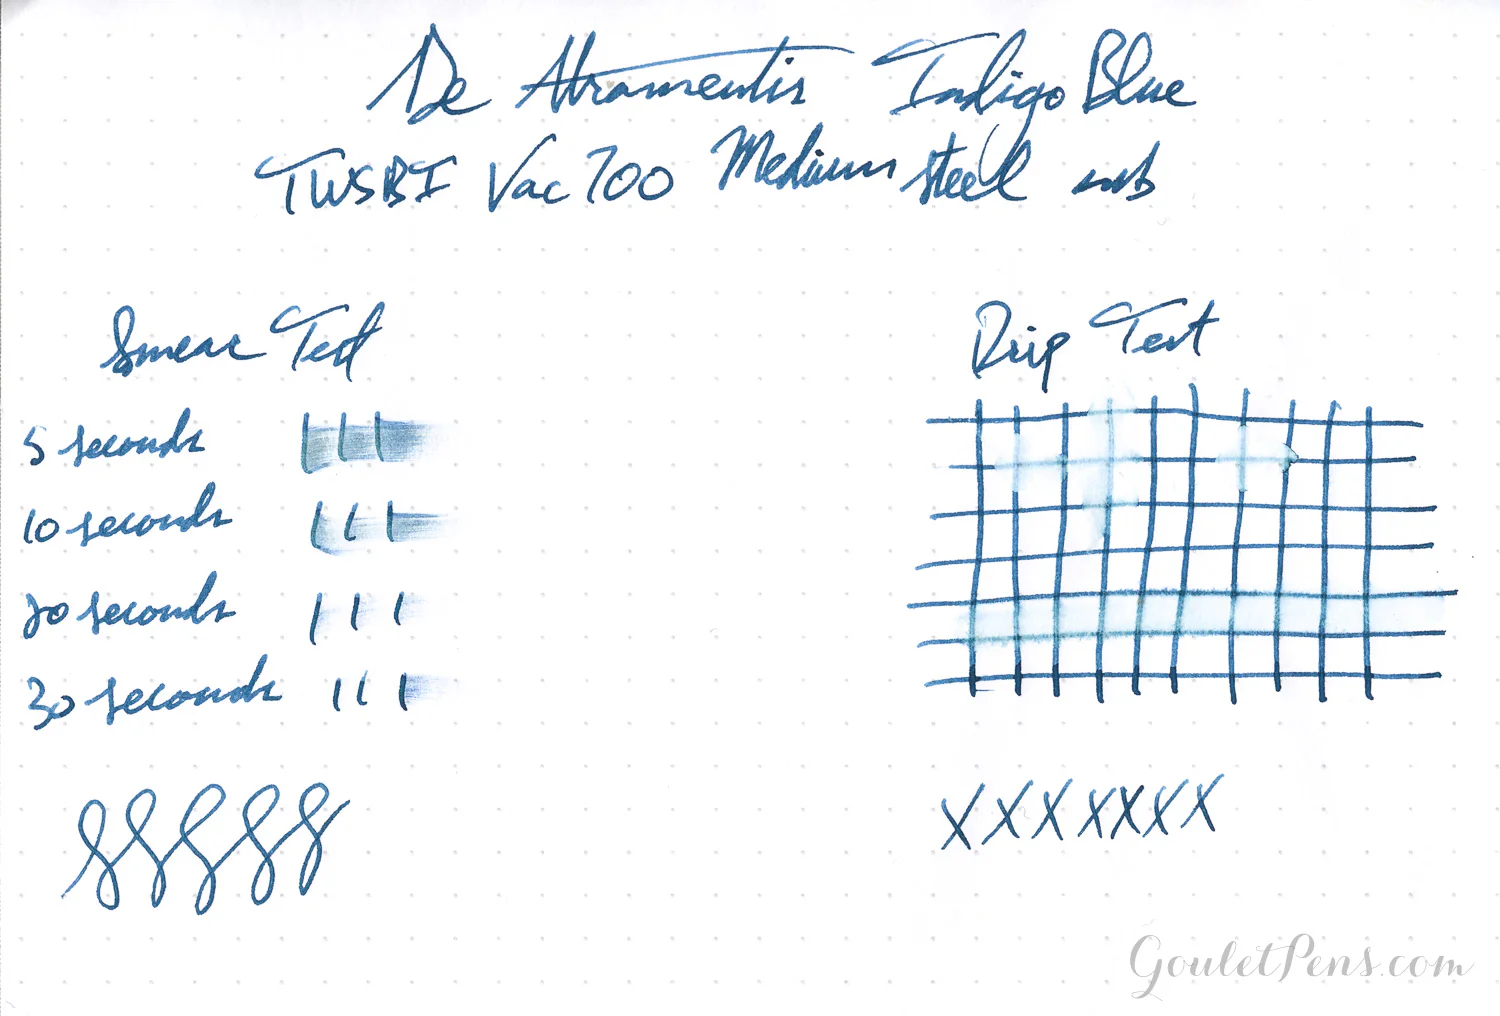 De Atramentis Indigo Blue
TWSBI Vac 700 Medium steel nib
Smear Test
Drip Test
5 seconds
10 seconds
20 seconds
30 seconds
x x x x x x x
GouletPens.com